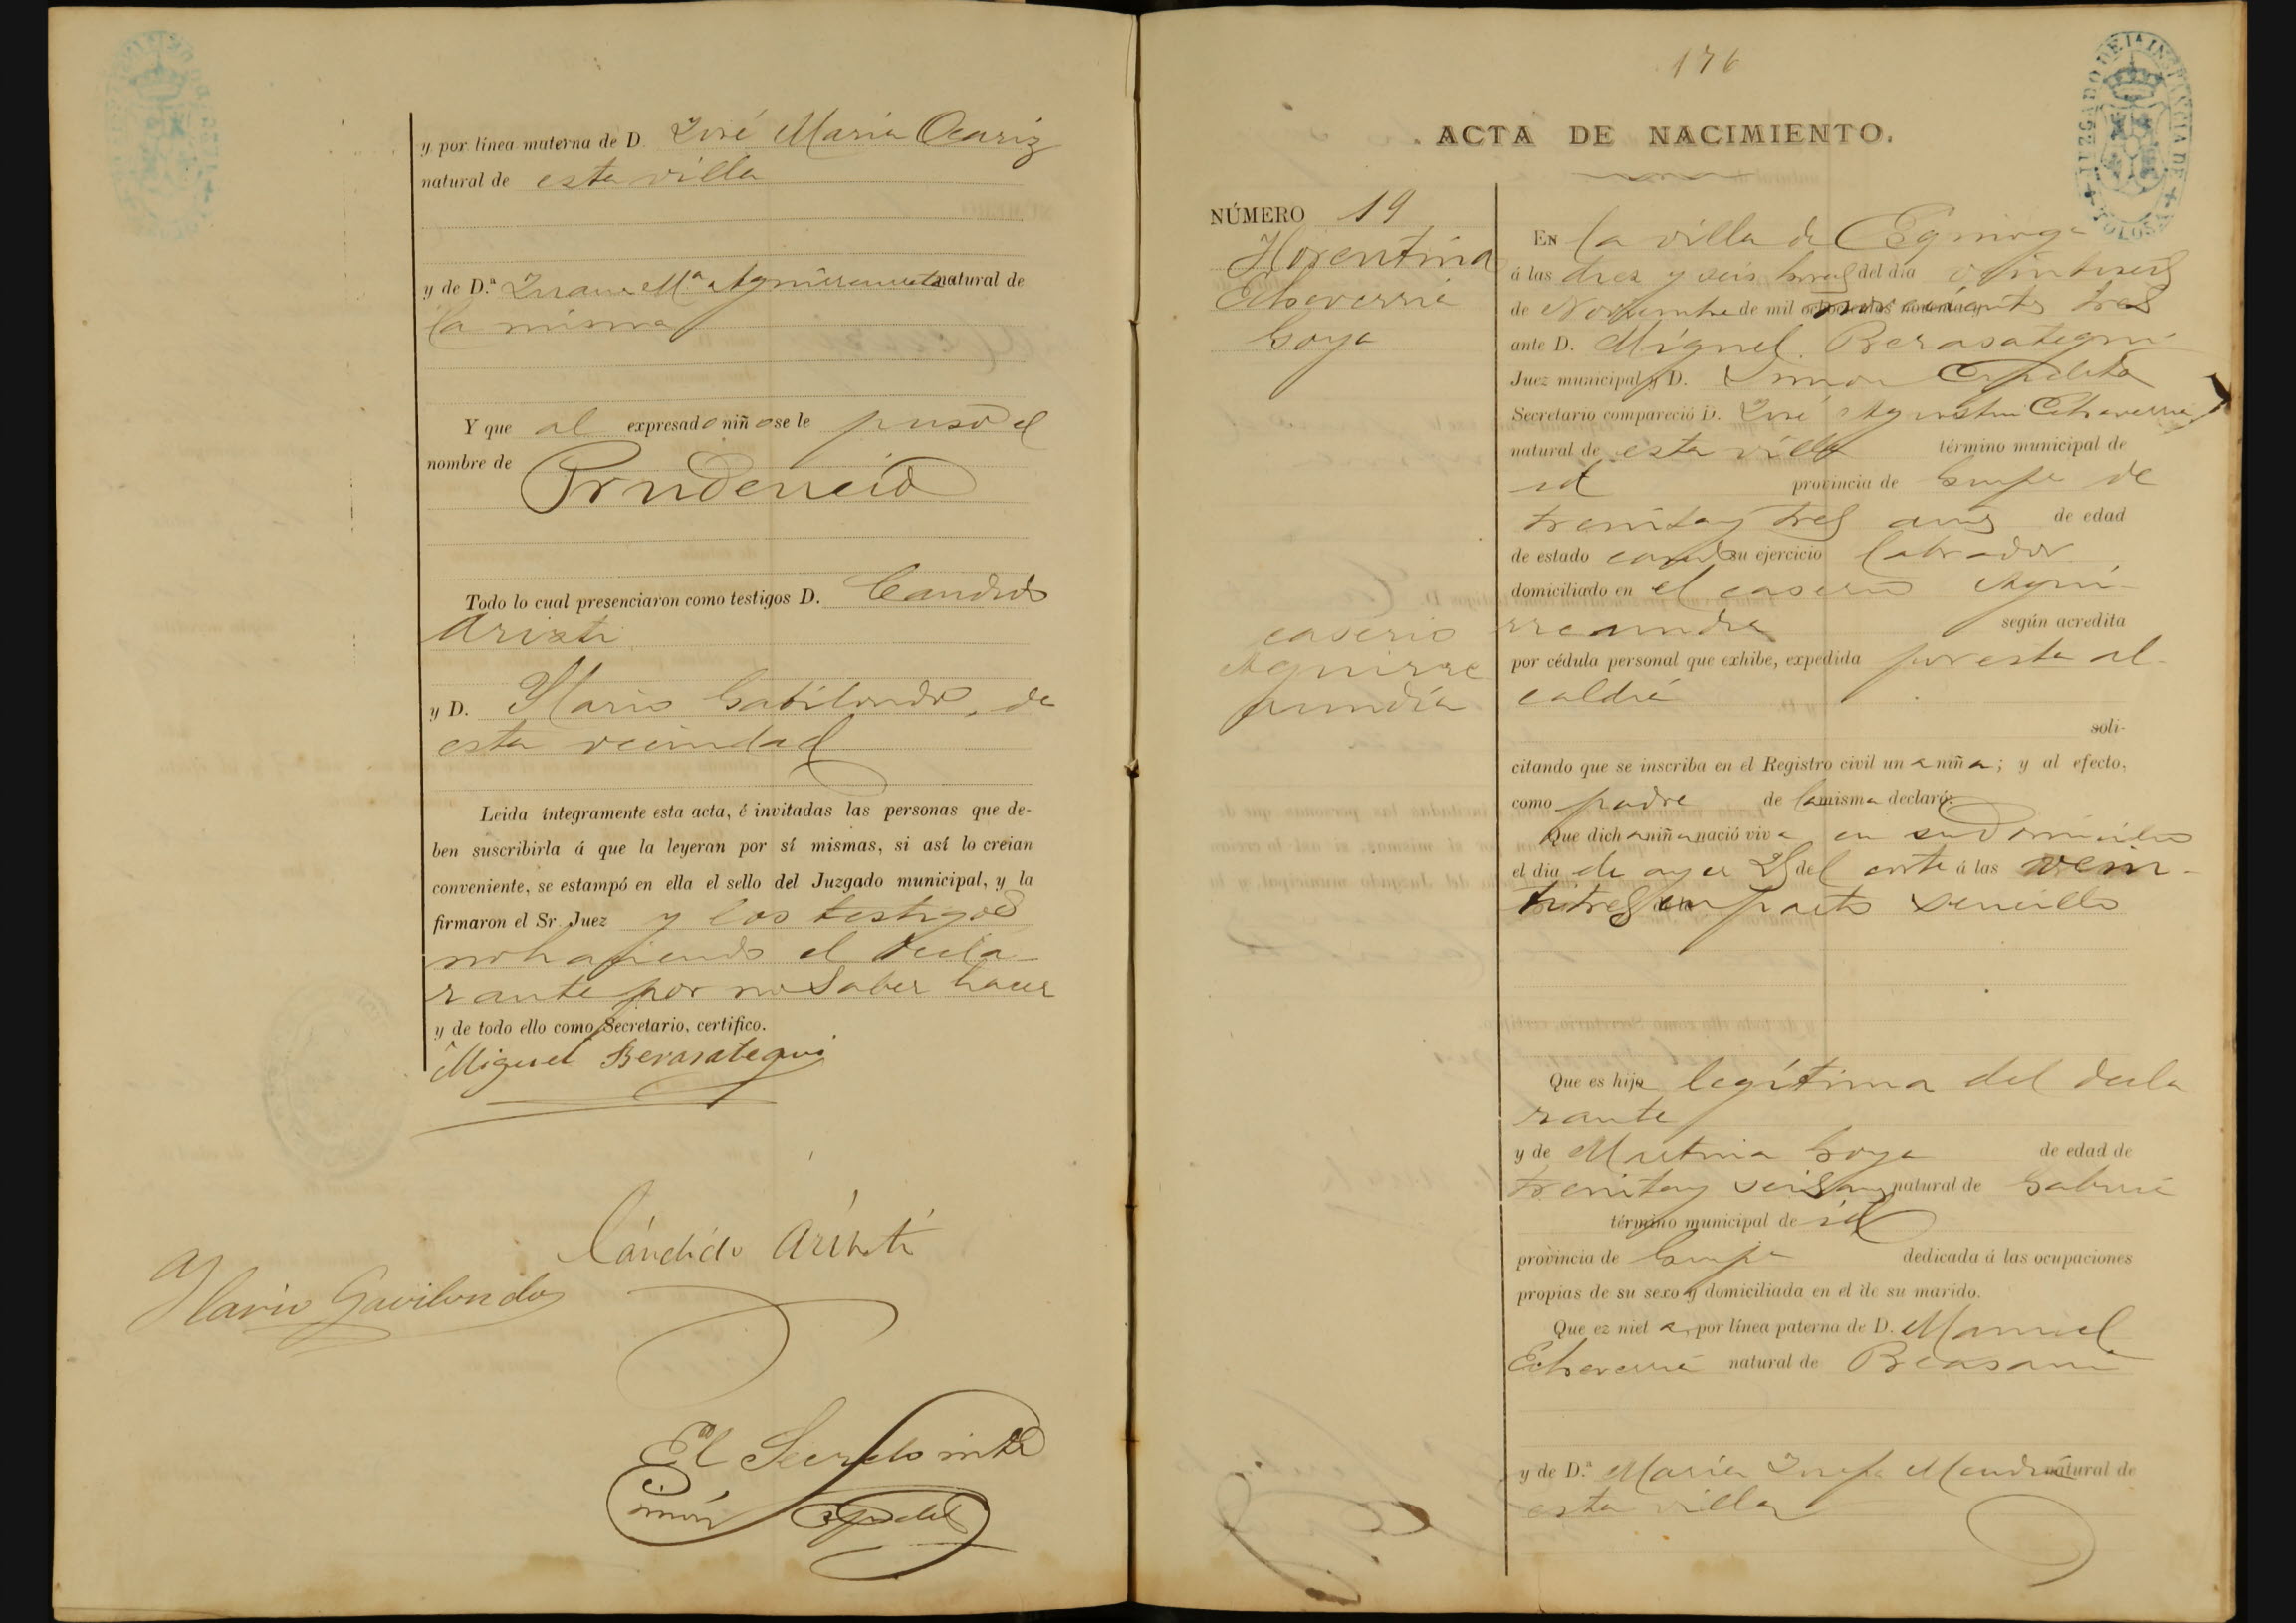 y por línea materna de D. José María Ocariz
natural de esta villa
y de D.ª Juana M.ª natural de
la misma
Y que al expresado niño se le puso el
nombre de
Prudencio
Todo lo cual presenciaron como testigos D. Candido
Aristi
y D. Hario Gabilondo, de
esta vecindad
Leida íntegramente esta acta, é invitadas las personas que de-
ben suscribirla á que la leyeran por sí mismas, si así lo creian
conveniente, se estampó en ella el sello del Juzgado municipal, y la
firmaron el Sr. Juez y los testigos
no haciendo el decla-
rante por no saber hacer
y de todo ello como Secretario, certifico.
Miguel Berasategui
Cándido Aristi
Hario Gavilondo
El Secreto intº
Simón
176
JUZGADO DE 1ª INSTANCIA DE TOLOSA
ACTA DE NACIMIENTO.
NÚMERO 19
Florentina
Echeverria
Goya
caserio
Aguirre
En la villa de
á las diez y seis horas del día veintiseis
de Noviembre de mil novecientos tres
ante D. Miguel Berasategui
Juez municipal y D. Simon
Secretario compareció D. José Agustin Echeverria
natural de esta villa término municipal de
id provincia de Guipª de
treinta y tres años de edad
de estado casado su ejercicio labrador
domiciliado en el caserio Agui-
según acredita
por cédula personal que exhibe, expedida por esta al-
caldia
soli-
citando que se inscriba en el Registro civil una niña; y al efecto,
como padre de la misma declaró:
Que dicha niña nació viva en su domicilio
el dia de ayer 25 del corte á las vein-
titres en parto sencillo
Que es hija legítima del decla
rante
y de Martina Goya de edad de
treinta y seis años natural de Gabiria
término municipal de id
provincia de Guipª dedicada á las ocupaciones
propias de su sexo y domiciliada en el de su marido.
Que ez nieta por línea paterna de D. Manuel
Echeverria natural de Beasain
y de D.ª María Josefa natural de
esta villa